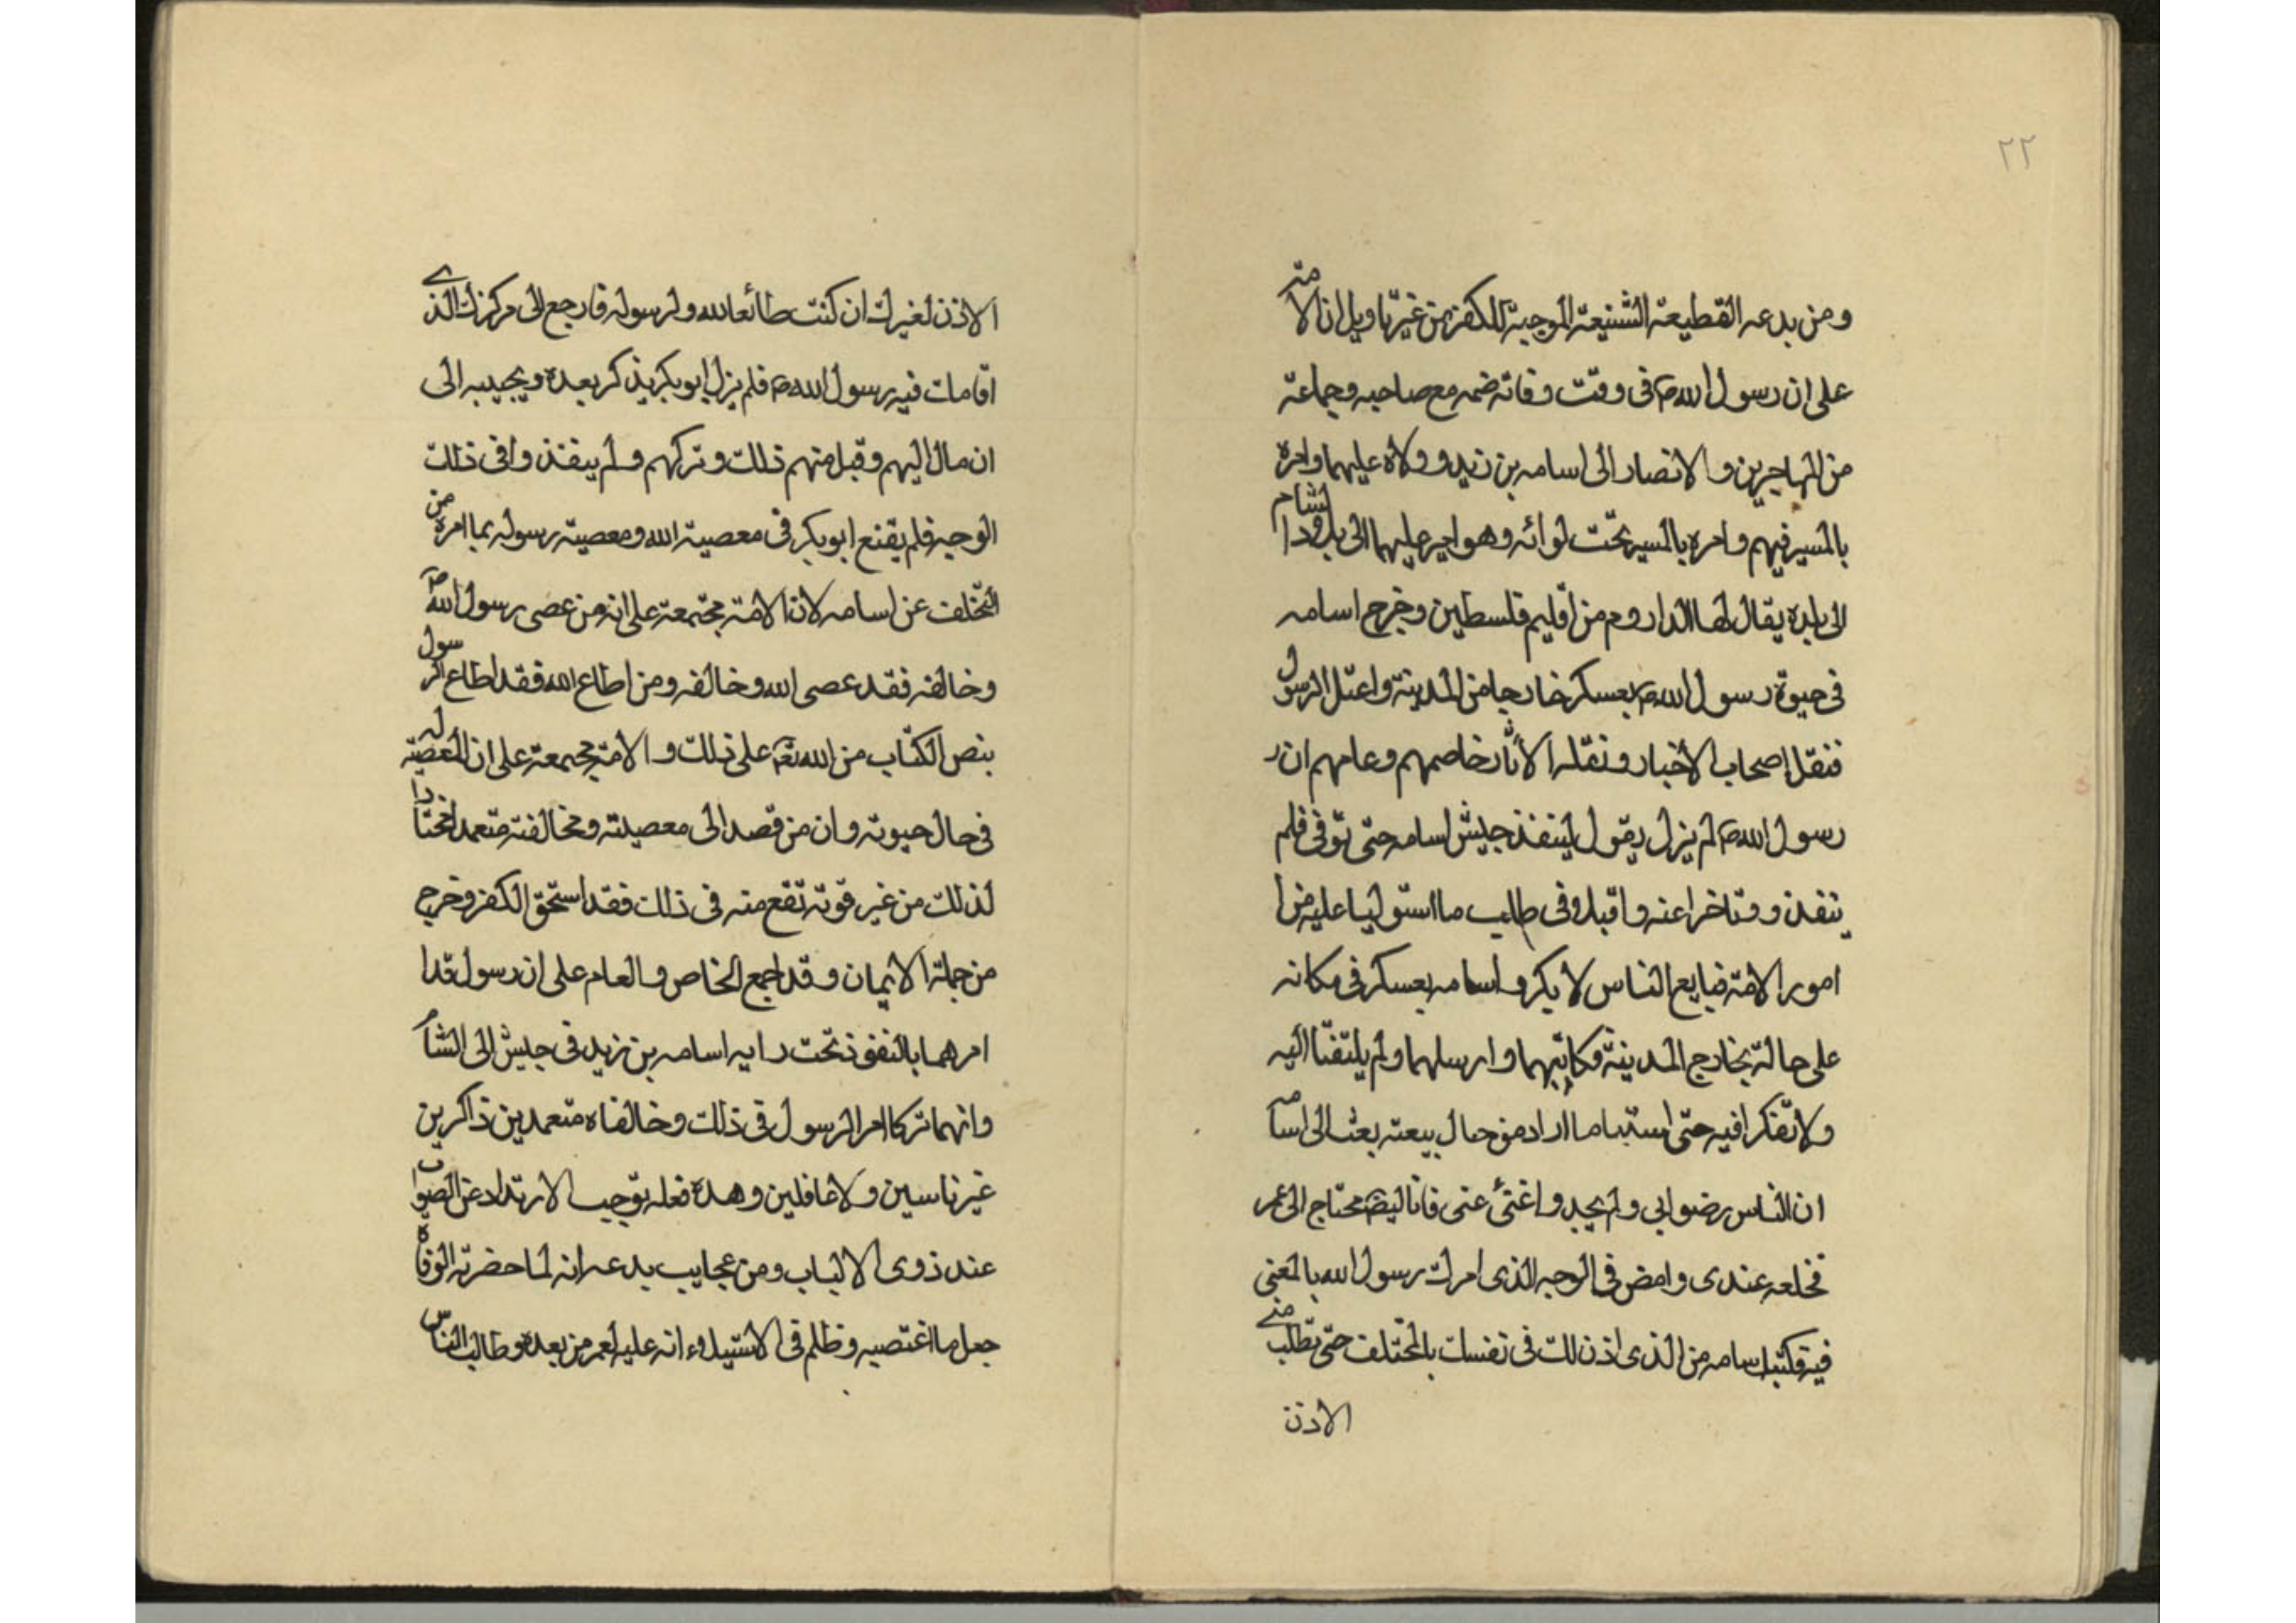 ٢٢
ومن بدعه القطيعة الشنيعة الموجبة للكفر من غير تاويل ان الامة
على ان رسول الله ص فى وقت وفاته ضمه مع صاحبه وجماعة
من المهاجرين والانصار الى اسامه بن زيد وولاه عليهما وامره
بالمسير فيهم وامره بالمسير تحت لوائه وهو امير عليهما الى بلاد الشام
الى بلدة يقال لها الداروم من اقليم فلسطين وخرج اسامه
فى حيوة رسول الله ص بعسكر خارجا من المدينة واعتل الرسول
فنقل اصحاب الاخبار ونقله الاثار خاصهم وعامهم ان
رسول الله ص لم يزل يقول لينفذ جيش اسامه حتى توفى فلم
ينفذ وتاخرا عنه واقبلا فى طلب ما استوليا عليه من
امور الامة فبايع الناس لابكر واسامه بعسكر فى مكانه
على حالة بخارج المدينة فكاتبهما وارسلهما ولم يلتفتا اليه
ولا تفكرا فيه حتى استتما ما اراد من حال بيعته بعث الى اسامه
ان الناس رضوا بى ولم يجدوا غنى عنى فانا ايضا محتاج الى عمر
فخلعه عندى وامض فى الوجه الذى امرك رسول الله بالمعنى
فيه فكتب اسامه من الذى اذن لك فى نفسك بالتخلف حتى تطلب منى
الاذن
الاذن لغيرك ان كنت طائعا لله ولرسوله فارجع الى مركزك الذى
اقامك فيه رسول الله ص فلم يزل ابو بكر يذكر بعده ويجيبه الى
ان مال اليهم وقبل منهم ذلك وتركهم ولم ينفذ وافى ذلك
الوجه فلم يقنع ابو بكر فى معصية الله ومعصية رسوله بما امره من
التخلف عن اسامه لان الامة مجتمعة على انه من عصى رسول الله ص
وخالفه فقد عصى الله وخالفه ومن اطاع الله فقد اطاع الرسول
بنص الكتاب من الله تع على ذلك والامة مجتمعة على ان المعصية له
فى حال حيوته وان من قصد الى معصيته ومخالفته متعمدا مختارا
لذلك من غير قوته تقع منه فى ذلك فقد استحق الكفر وخرج
من جملة الايمان وقد اجمع الخاص والعام على ان رسول قدا
امرهما بالنفوذ تحت رايه اسامه بن زيد فى جيش الى الشام
وانهما تركا امر الرسول فى ذلك وخالفاه متعمدين ذاكرين
غير ناسين ولا غافلين وهذه فعله توجب الارتداد عن الصواب
عند ذوى الالباب ومن عجايب بدعه انه لما حضرته الوفاة
جعل ما اغتصبه وظلم فى الاستيلاء انه عليه لعمر من بعده وطالب الناس